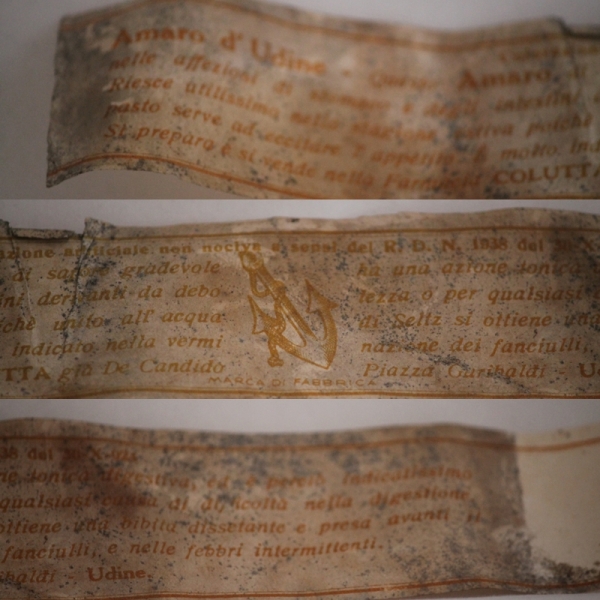 Amaro d'Udine - Questo Amaro di
nelle affezioni di stomaco e degli intestini
Riesce utilissimo nella stagione estiva poichè
pasto serve ad eccitare l'appetito. È molto ind
Si prepara e si vende nella Farmacia COLUTTA
zione artificiale non nociva a sensi del R. D. N. 1938 del 30-X-
di sapore gradevole
ni derivanti da debo
chè unito all'acqua
indicato nella vermi
TTA già De Candido
MARCA DI FABBRICA
ha una azione tonica
tezza o per qualsiasi
di Seltz si ottiene una
nazione dei fanciulli,
Piazza Garibaldi - U
38 del 30-X-
ne tonica digestiva, ed è perciò indicatissimo
qualsiasi causa di difficoltà nella digestione.
ottiene una bibita dissetante e presa avanti il
fanciulli, e nelle febbri intermittenti.
ibaldi - Udine.